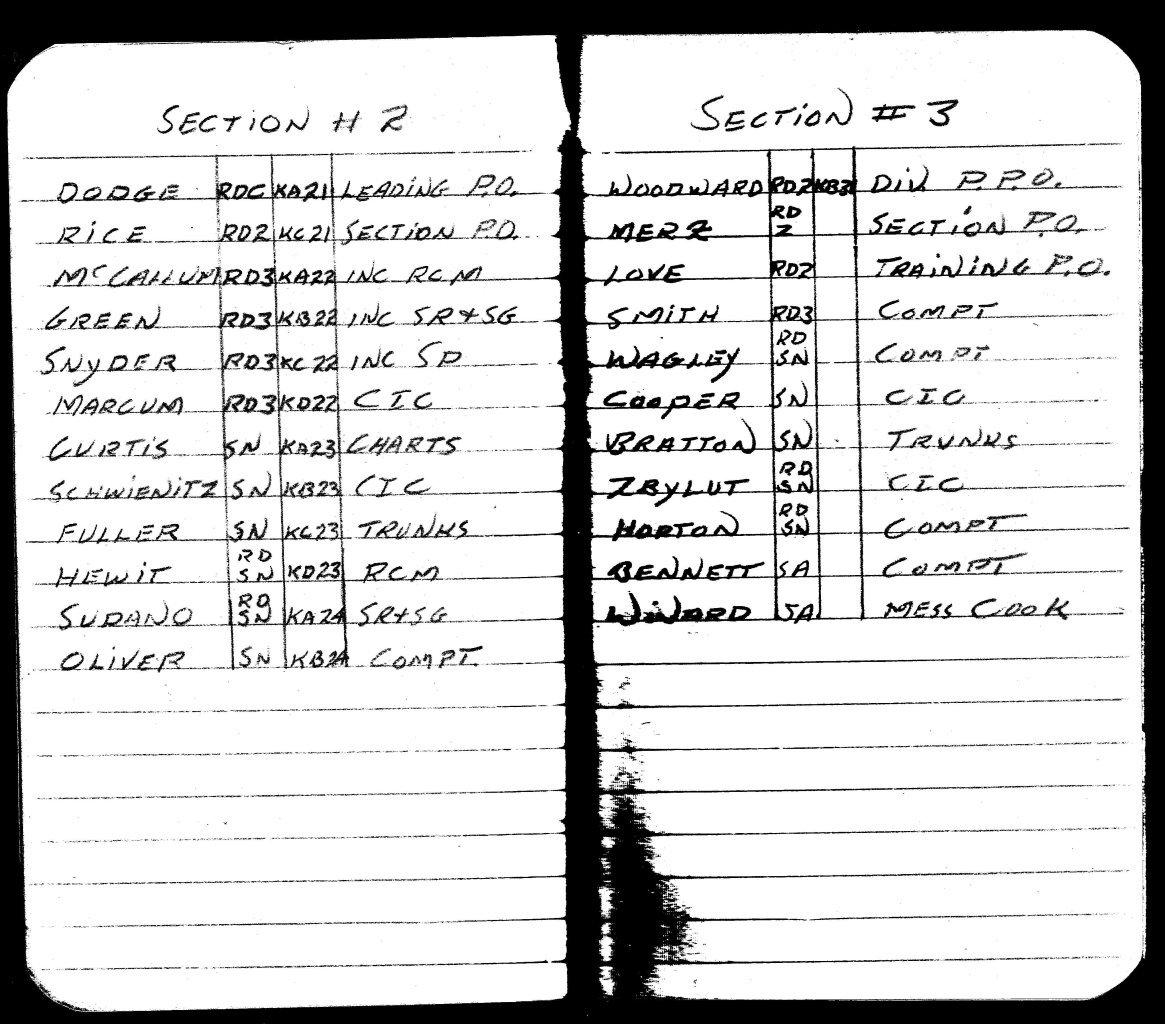 SECTION # 2
DODGE RDC KA21 LEADING P.O.
RICE RD2 KC21 SECTION P.O.
McCALLUM RD3 KA22 INC RCM
GREEN RD3 KB22 INC SR+SG
SNYDER RD3 KC22 INC SP
MARCUM RD3 KD22 CIC
CURTIS SN KA23 CHARTS
SCHWIENITZ SN KB23 CIC
FULLER SN KC23 TRUNKS
HEWIT RDSN KD23 RCM
SUDANO RDSN KA24 SR+SG
OLIVER SN KB24 COMPT.
SECTION # 3
WOODWARD RD2 KB31 DIV. P.P.O.
MERZ RD2 SECTION P.O.
LOVE RD2 TRAINING P.O.
SMITH RD3 COMPT
WAGLEY RDSN COMPT
COOPER SN CIC
BRATTON SN TRUNKS
ZBYLUT RDSN CIC
HORTON RDSN COMPT
BENNETT SA COMPT
WINARD SA MESS COOK